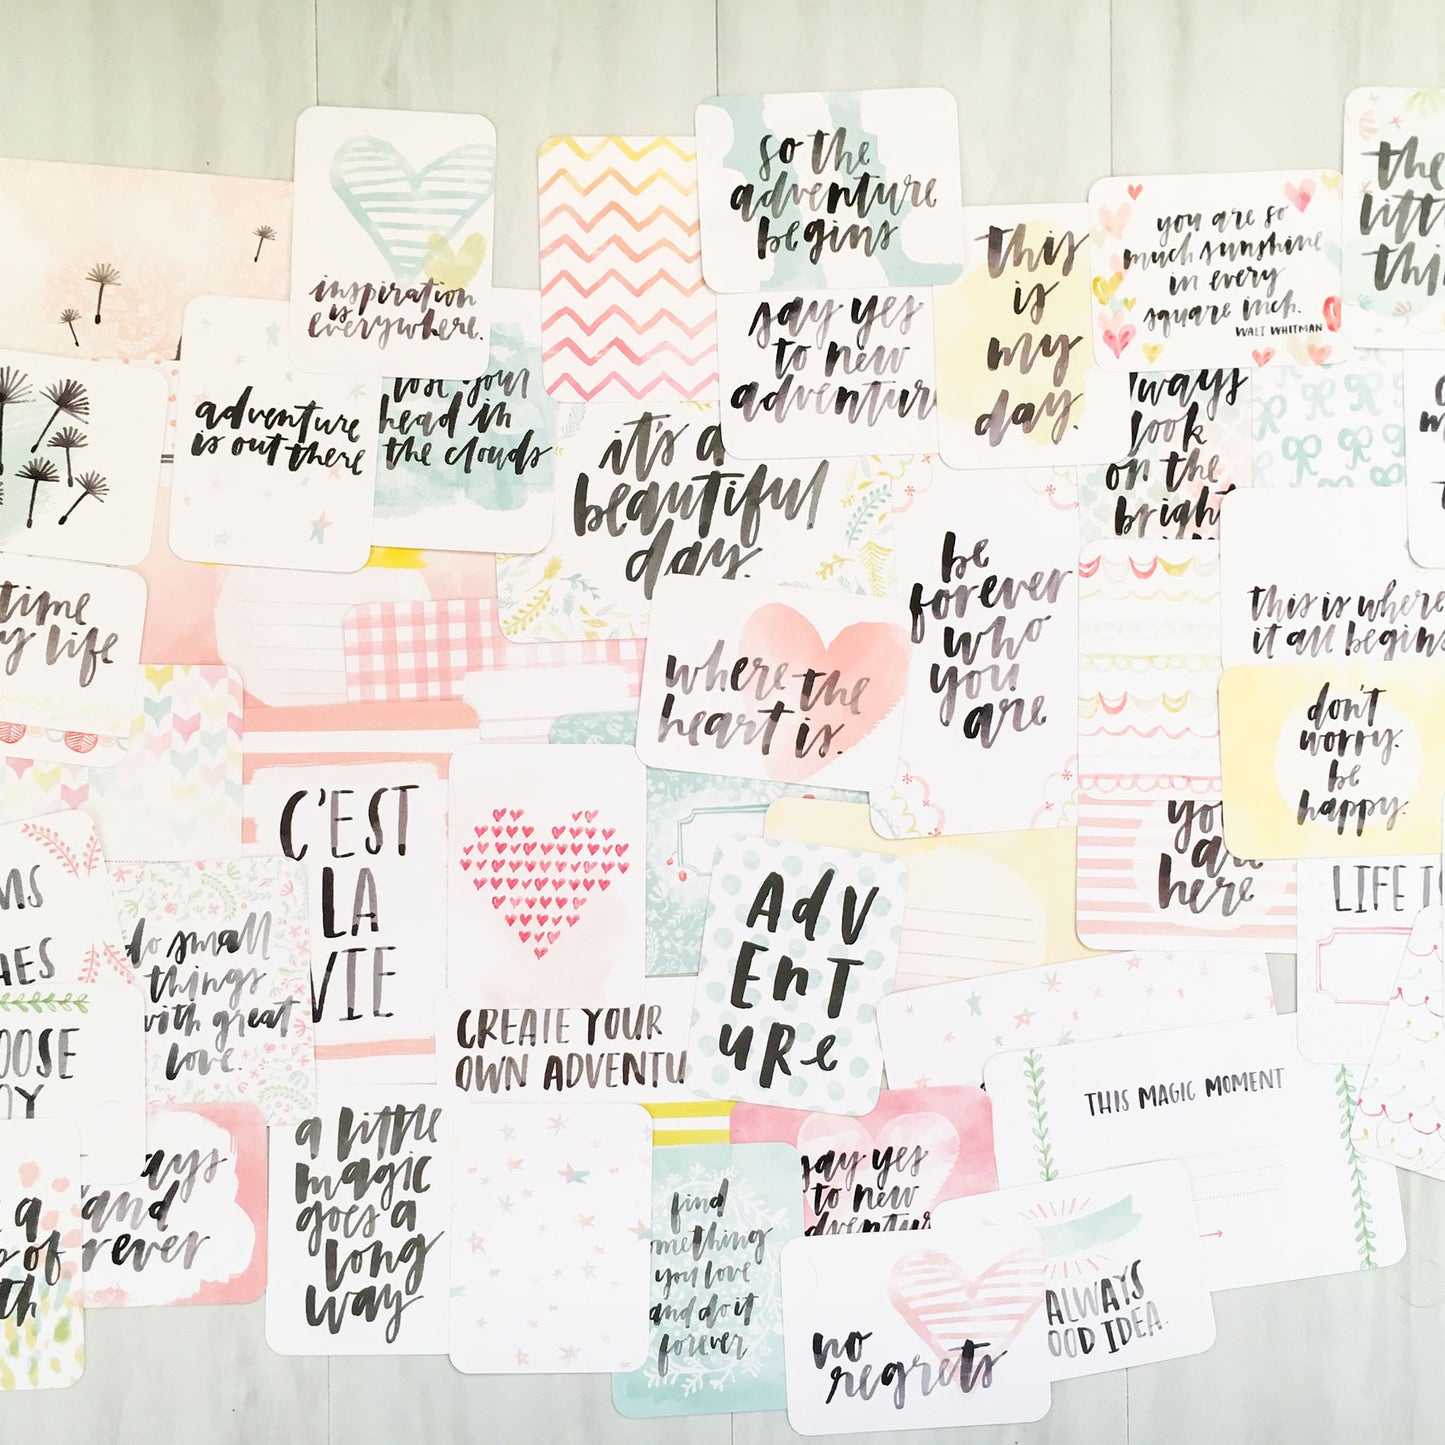 inspiration
is
everywhere.
so the
adventure
begins
this
is
my
day.
you are so
much sunshine
in every
square inch.
WALT WHITMAN
the
say yes
to new
adventure
adventure
is out there
lose your
head in
the clouds
it's a
beautiful
day.
look
on the
be
forever
who
you
are
this is where
it all begins
time
life
where the
heart is.
don't
worry.
be
happy.
you
are
here
LIFE
C'EST
LA
VIE
do small
things
with great
love.
CREATE YOUR
OWN ADVENTU
AdV
EnT
uRe
THIS MAGIC MOMENT
a little
magic
goes a
long
way
and
say yes
to new
find
you love
and do it
forever
no
regrets
ALWAYS
IDEA.
a
of